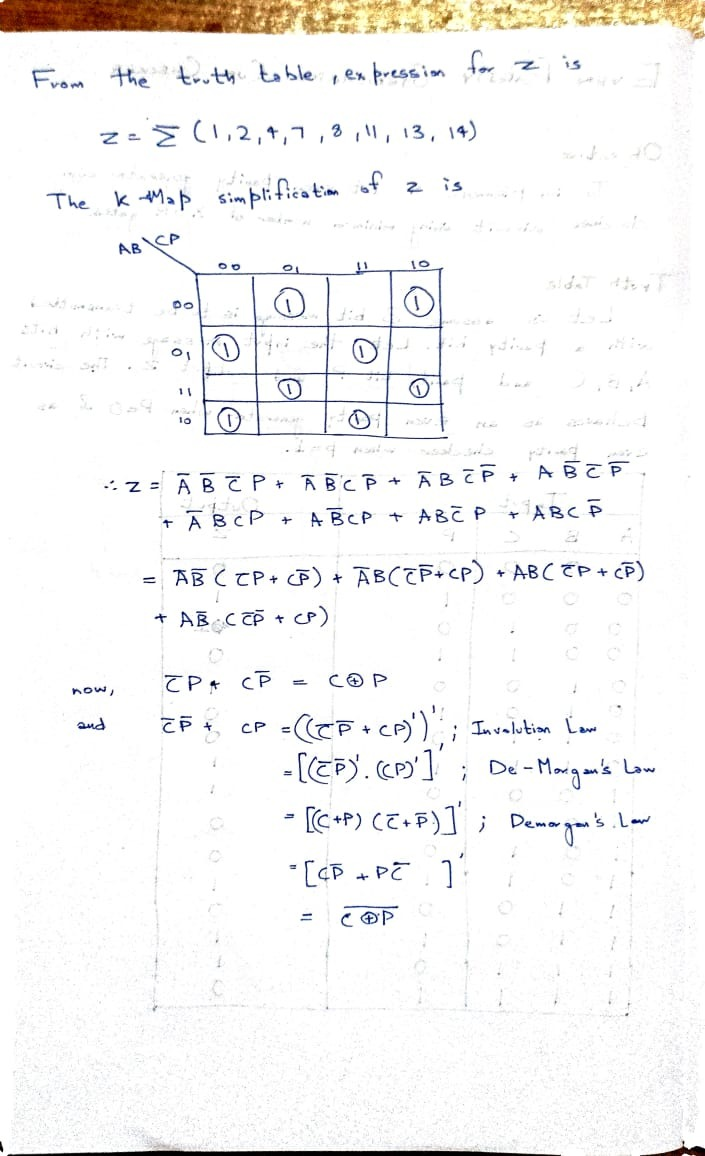 From the truth table, expression for z is
z = Σ (1,2,4,7,8,11,13,14)
The K-Map simplification of z is
AB\CP
00 01 11 10
00 1 1
01 1 1
11 1 1
10 1 1
∴ z = A̅ B̅ C̅ P + A̅ B̅ C P̅ + A̅ B C̅ P̅ + A B̅ C̅ P̅
+ A̅ B C P + A B̅ C P + A B C̅ P + A B C P̅
= A̅B̅ (C̅P + CP̅) + A̅B (C̅P̅ + CP) + AB (C̅P + CP̅)
+ AB̅ (C̅P̅ + CP)
now, C̅P + CP̅ = C⊕P
and C̅P̅ + CP = ((C̅P̅ + CP)')' ; Involution Law
= [(C̅P̅)'. (CP)']' ; De-Morgan's Law
= [(C+P) (C̅+P̅)]' ; Demorgan's Law
= [CP̅ + PC̅ ]'
= \overline{C⊕P}